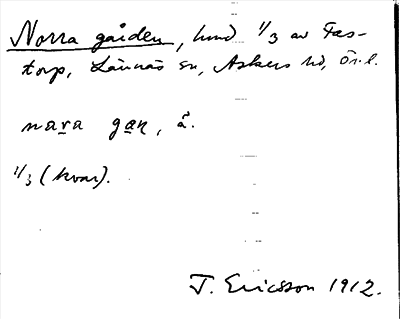 Norra gården, hmd 1/3 av Fäs-
torp, Lännäs sn, Askers hd, Ör. l.
nara gaṇ, å.
1/3 (kvar).
T. Ericsson 1912.